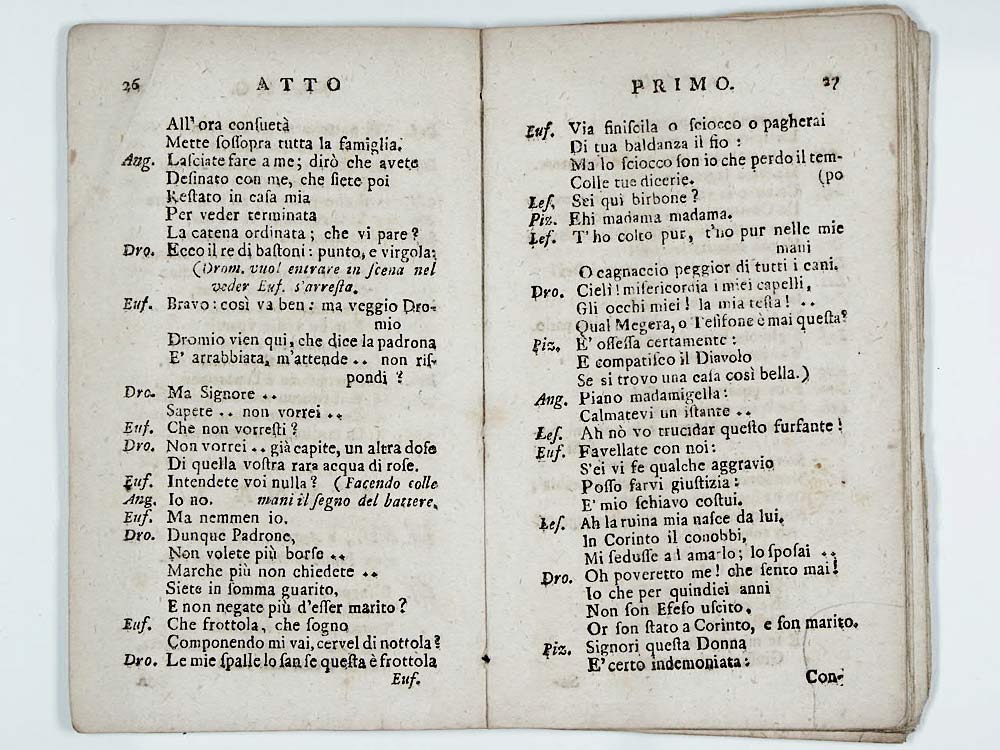 26 ATTO
All'ora consuetà
Mette sossopra tutta la famiglia.
Ang. Lasciate fare a me; dirò che avete
Desinato con me, che siete poi
Restato in casa mia
Per veder terminata
La catena ordinata; che vi pare?
Dro. Ecco il re di bastoni: punto, e virgola:
(Drom. vuol entrare in scena nel
veder Euf. s'arresta.
Euf. Bravo: così va ben: ma veggio Dro-
mio
Dromio vien qui, che dice la padrona
E' arrabbiata, m'attende .. non ris-
pondi?
Dro. Ma Signore ..
Sapete .. non vorrei ..
Euf. Che non vorresti?
Dro. Non vorrei .. già capite, un altra dose
Di quella vostra rara acqua di rose.
Euf. Intendete voi nulla? (Facendo colle
Ang. Io no. mani il segno del battere.
Euf. Ma nemmen io.
Dro. Dunque Padrone,
Non volete più borse ..
Marche più non chiedete ..
Siete in somma guarito,
E non negate più d'esser marito?
Euf. Che frottola, che sogno
Componendo mi vai, cervel di nottola?
Dro. Le mie spalle lo san se questa è frottola
Euf.
PRIMO. 27
Euf. Via finiscila o sciocco o pagherai
Di tua baldanza il fio:
Ma lo sciocco son io che perdo il tem-
Colle tue dicerie. (po
Les. Sei quì birbone?
Piz. Ehi madama madama.
Lef. T'ho colto pur, t'ho pur nelle mie
mani
O cagnaccio peggior di tutti i cani.
Dro. Cieli! misericordia i miei capelli,
Gli occhi miei! la mia testa! ..
Qual Megera, o Tesifone è mai questa?
Piz. E' ossessa certamente:
E compatisco il Diavolo
Se si trovo una casa così bella.)
Ang. Piano madamigella:
Calmatevi un istante ..
Les. Ah nò vo trucidar questo furfante!
Euf. Favellate con noi:
S'ei vi fe qualche aggravio
Posso farvi giustizia:
E' mio schiavo costui.
Les. Ah la ruina mia nasce da lui.
In Corinto il conobbi,
Mi sedusse ad amarlo; lo sposai ..
Dro. Oh poveretto me! che sento mai!
Io che per quindici anni
Non son Efeso uscito,
Or son stato a Corinto, e son marito.
Piz. Signori questa Donna
E' certo indemoniata:
Con-